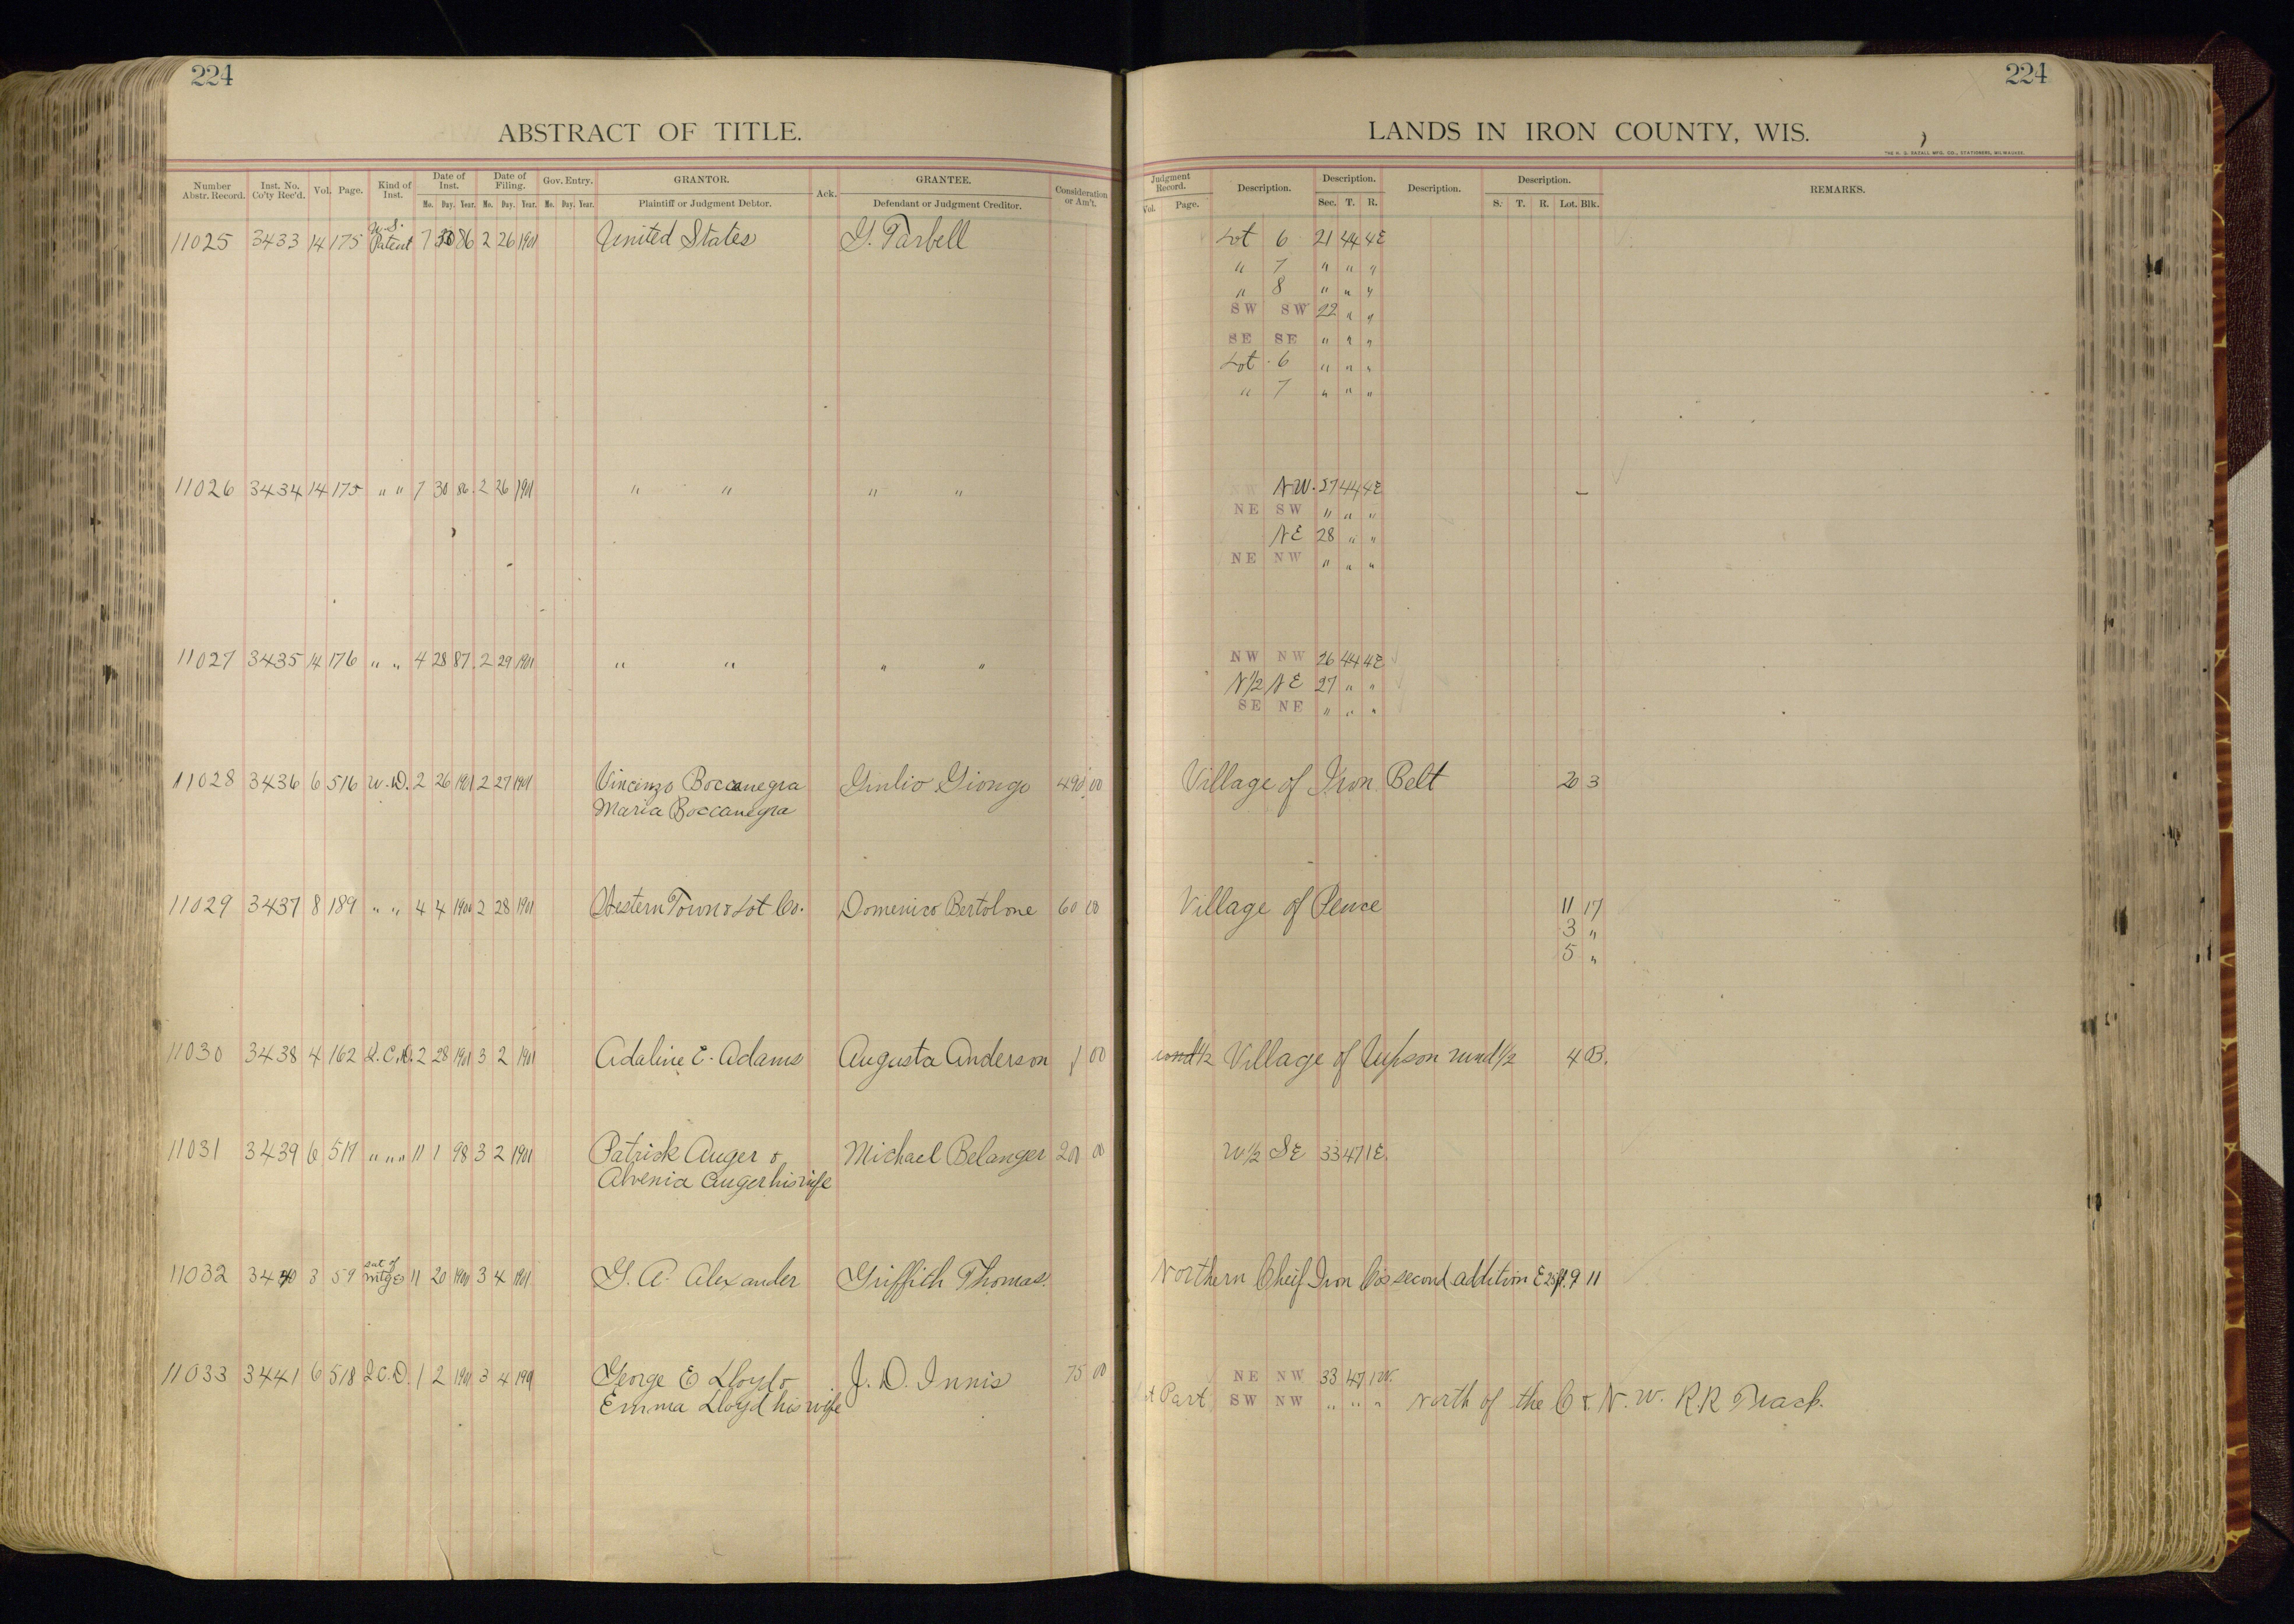 224
ABSTRACT OF TITLE.
Number Abstr. Record. Inst. No. Co'ty Rec'd. Vol. Page. Kind of Inst. Date of Inst. Mo. Day. Year. Date of Filing. Mo. Day. Year. Gov. Entry. Mo. Day. Year. GRANTOR. Plaintiff or Judgment Debtor. Ack. GRANTEE. Defendant or Judgment Creditor. Consideration or Am't.
11025 3433 14 175 U.S. Patent 7 30 86 2 26 1901 United States G. Tarbell
11026 3434 14 175 " " 7 30 86 2 26 1901 " " " "
11027 3435 14 176 " " 4 28 87 2 29 1901 " " " "
11028 3436 6 516 W.D. 2 26 1901 2 27 1901 Vincenzo Boccanegra Giulio Giongo 490 00
Maria Boccanegra
11029 3437 8 189 " " 4 4 1900 2 28 1901 Western Town & Lot Co. Domenico Bertolone 60 00
11030 3438 4 162 Q.C.D. 2 28 1901 3 2 1901 Adaline E. Adams Augusta Anderson 1 00
11031 3439 6 517 " " " 11 1 98 3 2 1901 Patrick Auger & Michael Belanger 200 00
Alvenia Auger his wife
11032 3440 3 59 Sat of Mtge 11 20 1900 3 4 1901 G. A. Alexander Griffith Thomas.
11033 3441 6 518 Q.C.D. 1 2 1901 3 4 1901 George E Lloyd & J. D. Innis 75 00
Emma Lloyd his wife
224
LANDS IN IRON COUNTY, WIS.
THE H. G. RAZALL MFG. CO., STATIONERS, MILWAUKEE.
Judgment Record. Vol. Page. Description. Description. Sec. T. R. Description. Description. S. T. R. Lot. Blk. REMARKS.
Lot 6 21 44 4E
" 7 " " "
" 8 " " "
SW SW 22 " "
SE SE " " "
Lot 6 " " "
" 7 " " "
NW. 27 44 4E
NE SW " " "
NE 28 " "
NE NW " " "
NW NW 26 44 4E
N1/2 NE 27 " "
SE NE " " "
Village of Iron Belt 20 3
Village of Pence 11 17
3 "
5 "
und 1/2 Village of Upson und 1/2 4 B.
W1/2 SE 33 47 1E.
Northern Cheif Iron Co's second addition E 25ft. 9 11
NE NW 33 47 1W.
Part SW NW " " " North of the C & N. W. R.R Track.